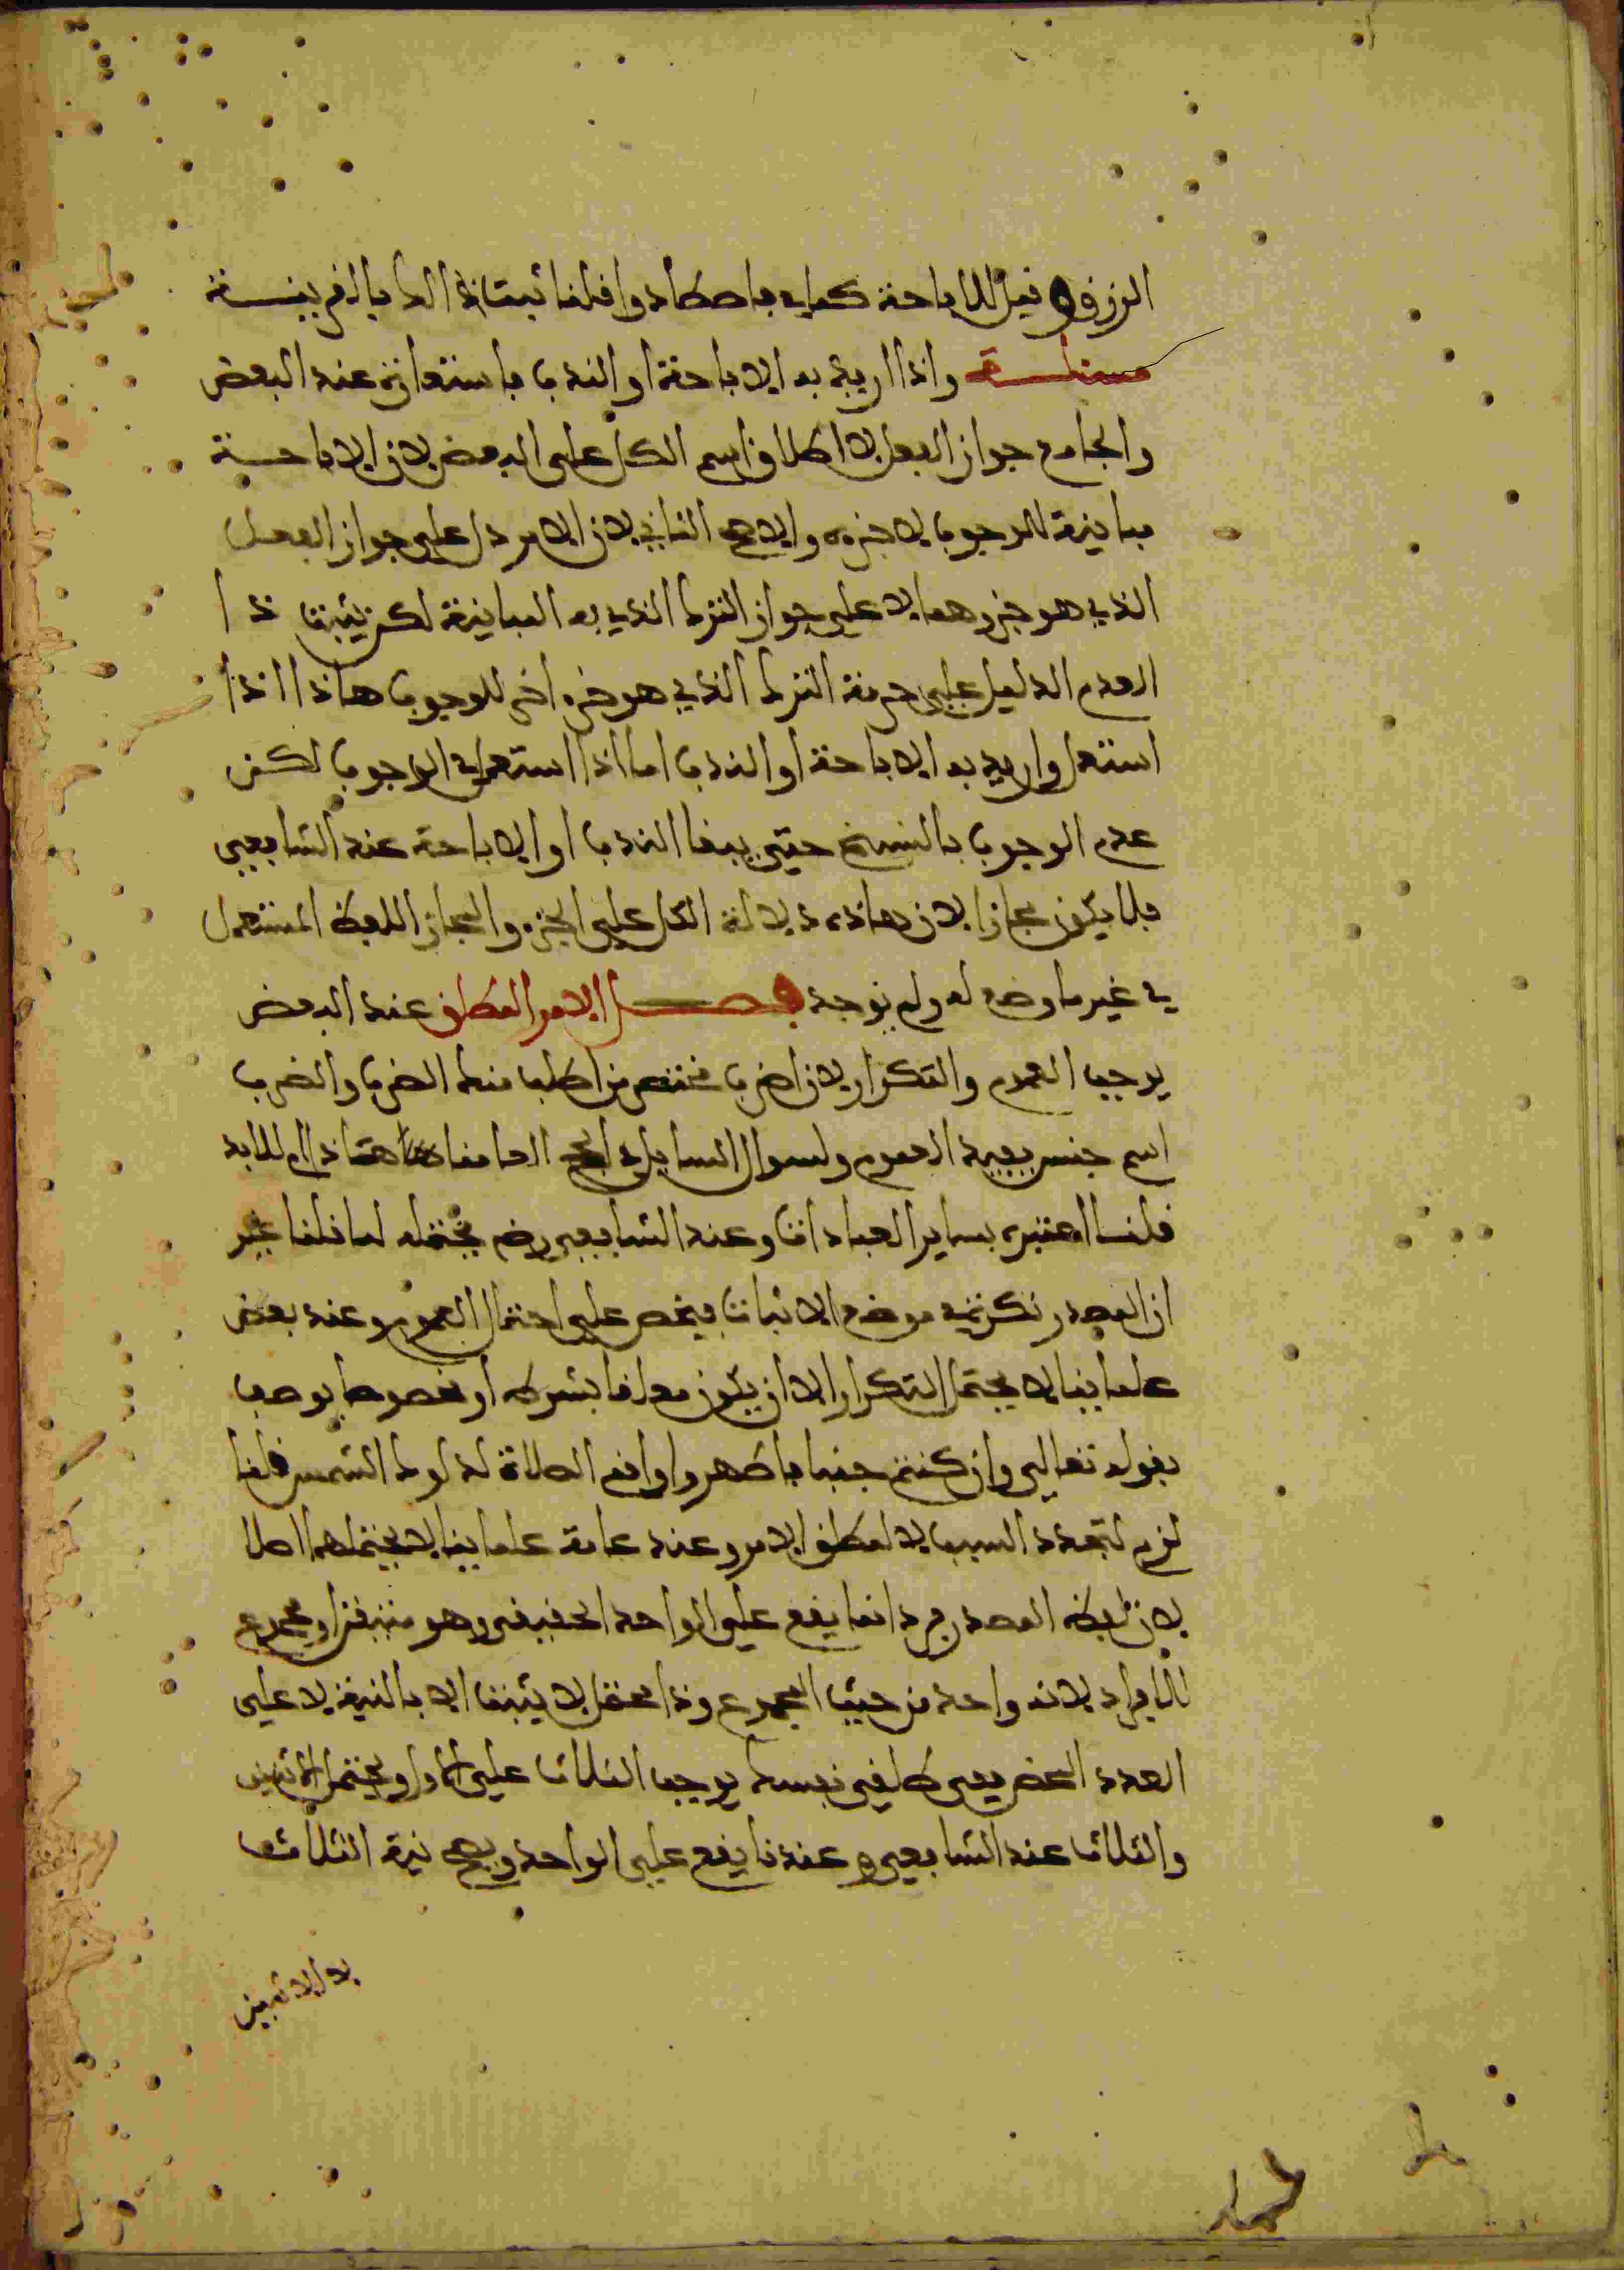 الرزق وقيل للاباحة كما في فاصطادوا قلنا ثبت ذالك بالقرينة
مسئلة واذا اريد به الاباحة او الندب فاستعارة عند البعض
والجامع جواز الفعل لا اطلاق اسم الكل على البعض لان الاباحة
مباينة للوجوب لا جزءه والاصح الثاني لان الامر دل على جواز الفعل
الذي هو جزءهما لا على جواز الترك الذي به المباينة لكن يثبت ذا
لعدم الدليل على حرمة الترك الذي هو جزء اخر للوجوب هاذا اذا
استعمل واريد به الاباحة او الندب اما اذا استعمل في الوجوب لكن
عدم الوجوب بالنسخ حتى يبقا الندب او الاباحة عند الشافعي
فلا يكون مجازا لان هاذه دلالة الكل على الجزء والمجاز اللفظ المستعمل
في غير ما وضع له ولم يوجد فصل الامر المطلق عند البعض
يوجب العموم والتكرار لان اضرب مختصر من اطلب منك الضرب والضرب
اسم جنس يفيد العموم ولسوال السايل في الحج العامنا هاذا ام للابد
قلنا اعتبره بساير العبادات وعند الشافعي رضه يحتمله لما قلنا غير
ان المصدر نكرة في موضع الاثبات فيخص على احتمال العموم وعند بعض
علمائنا لا يحتمل التكرار الا ان يكون معلقا بشرط او مخصوصا بوصف
بقوله تعالى وان كنتم جنبا فاطهروا واقم الصلاة لدلوك الشمس قلنا
لزم لتجدد السبب لا لمطلق الامر وعند عامة علمائنا لا يحتملهما اصلا
لان لفظه المصدر فرد انما يقع على الواحد الحقيقي وهو متيقن او مجموع
الافراد لانه واحد من حيث المجموع وذا محتمل لا يثبت الا بالنية لا على
العدد المحض ففي طلقي نفسك يوجب الثلاث على الاول ويحتمل الاثنين
والثلاث عند الشافعي وعندنا يقع على الواحد ويصح نية الثلاث
لا الاثنين